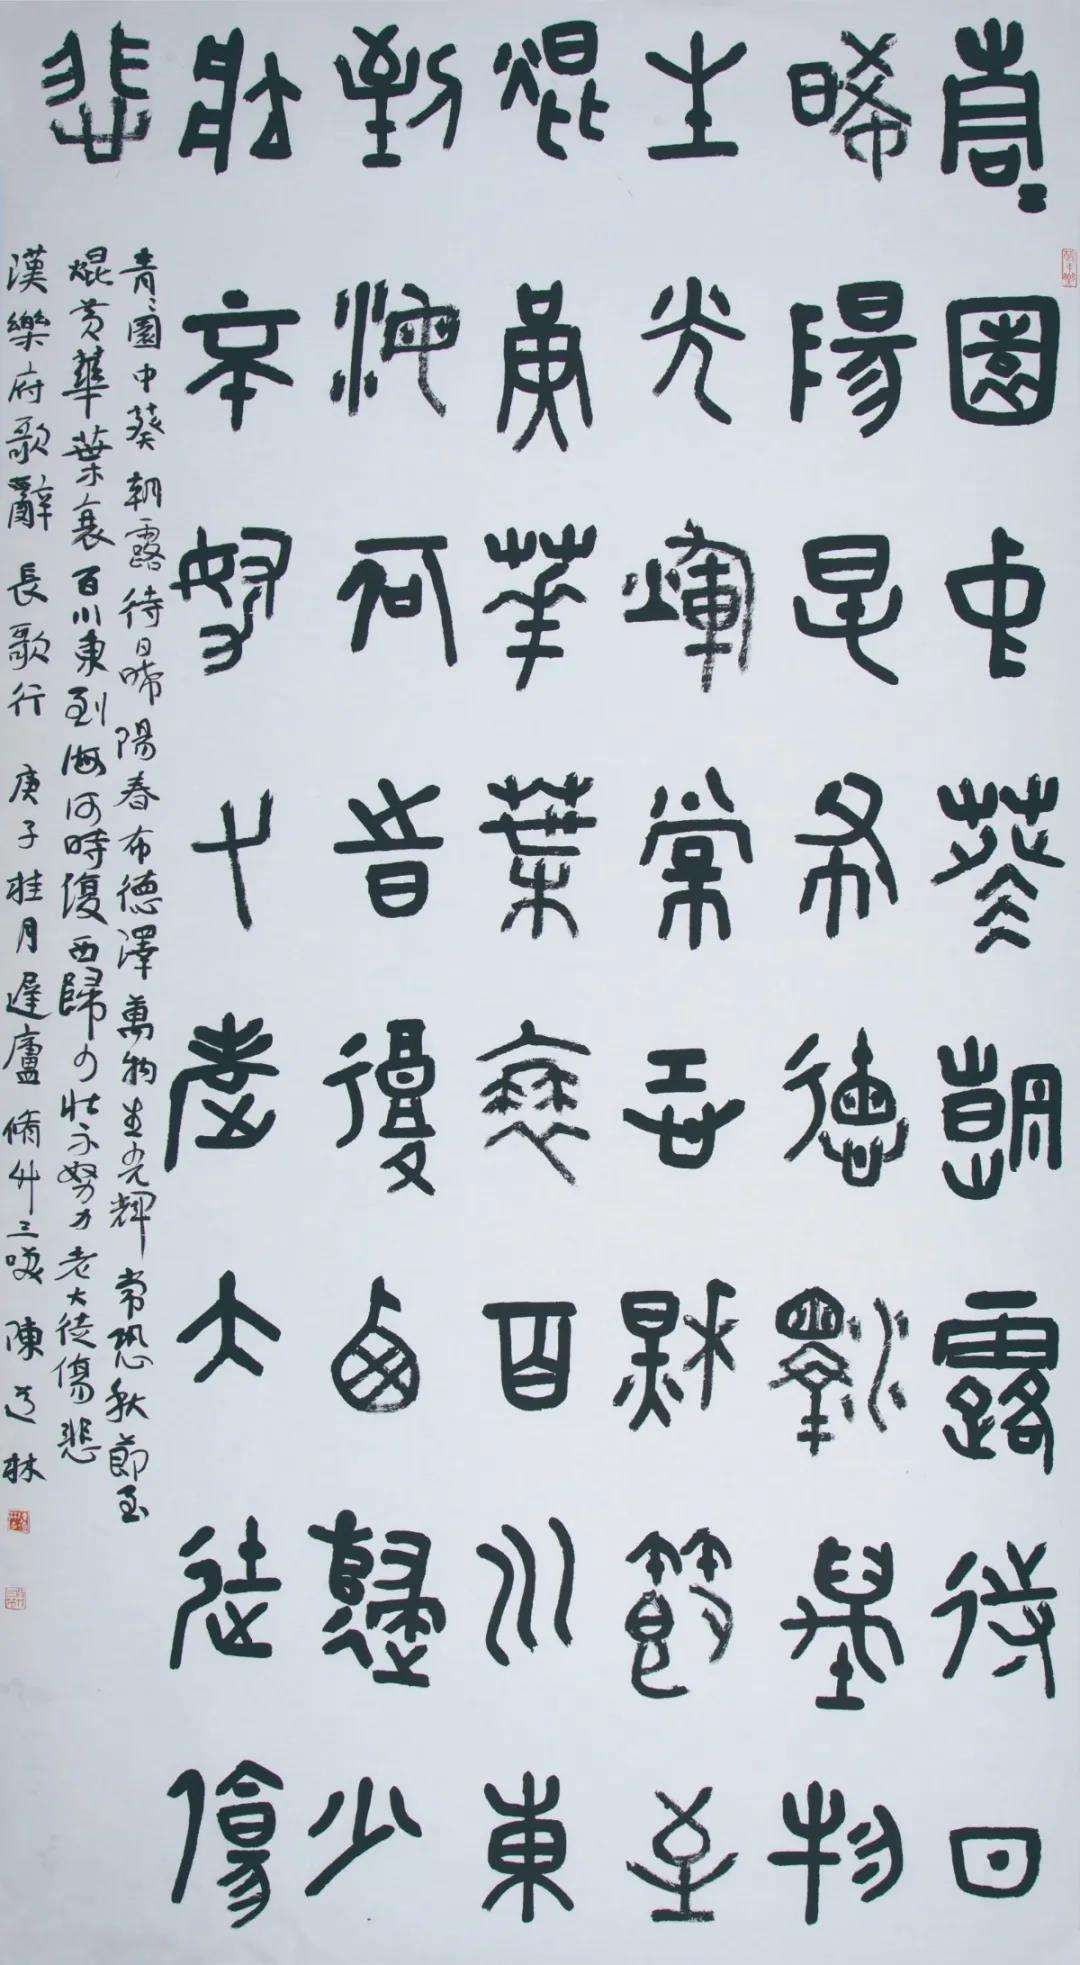 青〻園中葵朝露待日
晞陽春布德澤萬物
生光輝常恐秋節至
焜黃華葉衰百川東
到海何時復西歸少
壯不努力老大徒傷
悲
青〻園中葵朝露待日晞陽春布德澤萬物生光輝常恐秋節至
焜黃華葉衰百川東到海何時復西歸少壯不努力老大徒傷悲
漢樂府歌辭長歌行 庚子桂月遲廬脩 陳道林